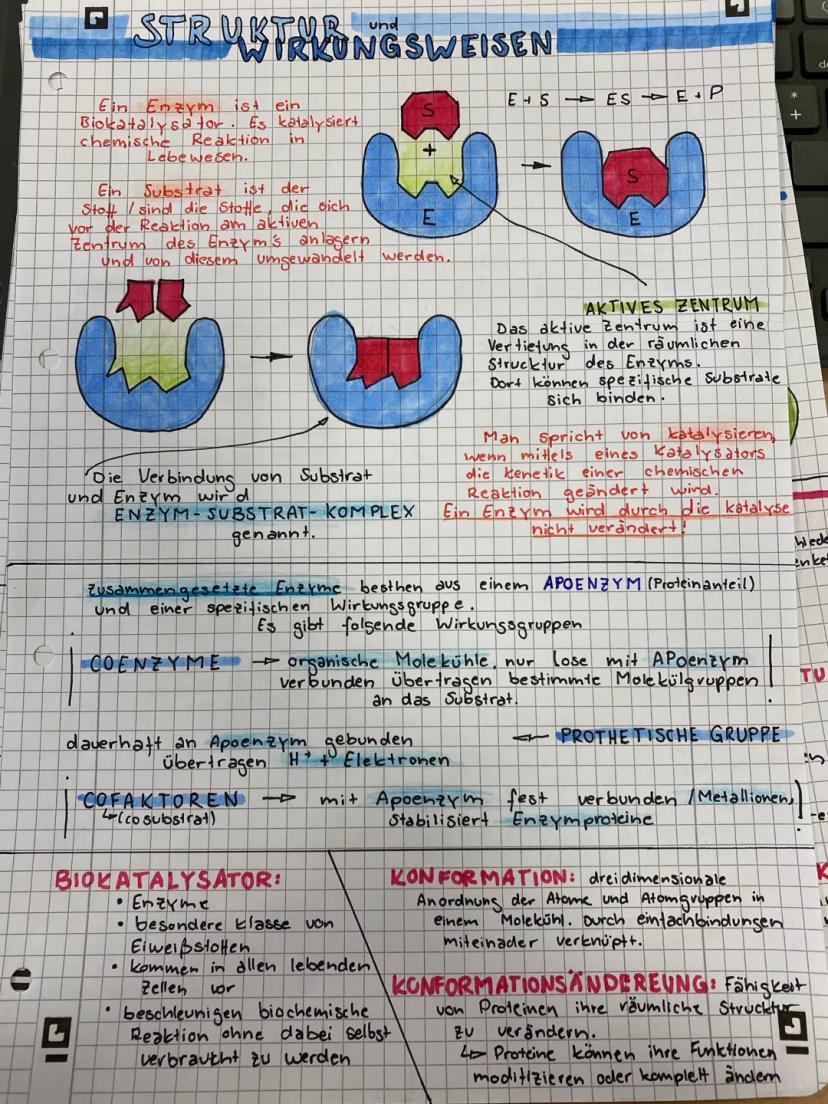 STRUKTUR und
WIRKUNGSWEISEN
Ein Enzym ist ein
Biokatalysator. Es katalysiert
chemische Reaktion in
Lebewesen.
Ein Substrat ist der
Stoff / sind die Stoffe, die sich
vor der Reaktion am aktiven
Zentrum des Enzym's anlagern
und von diesem umgewandelt werden.
S
+
E
E + S → ES → E + P
S
E
AKTIVES ZENTRUM
Das aktive Zentrum ist eine
Vertiefung in der räumlichen
Strucktur des Enzyms.
Dort können spezifische Substrate
sich binden.
Die Verbindung von Substrat
und Enzym wird
ENZYM-SUBSTRAT-KOMPLEX
genannt.
Man spricht von katalysieren,
wenn mittels eines Katalysators
die kenetik einer chemischen
Reaktion geändert wird.
Ein Enzym wird durch die katalyse
nicht verändert!
zusammengesetzte Enzyme besthen aus einem APOENZYM (Proteinanteil)
und einer spezifischen Wirkungsgruppe.
Es gibt folgende Wirkungsgruppen
COENZYME → organische Molekühle, nur lose mit APoenzym
verbunden übertragen bestimmte Molekülgruppen
an das Substrat.
dauerhaft an Apoenzym gebunden ← PROTHETISCHE GRUPPE
übertragen H⁺ + Elektronen
COFAKTOREN → mit Apoenzym fest verbunden /Metallionen)
↳(cosubstrat) Stabilisiert Enzymproteine
BIOKATALYSATOR:
• Enzyme
• besondere klasse von
Eiweißstoffen
• kommen in allen lebenden
Zellen vor
• beschleunigen biochemische
Reaktion ohne dabei selbst
verbraucht zu werden
KONFORMATION: dreidimensionale
Anordnung der Atome und Atomgruppen in
einem Molekühl. Durch einfachbindungen
miteinader verknüpft.
KONFORMATIONSÄNDEREUNG: Fähigkeit
von Proteinen ihre räumliche Strucktur
zu verändern.
↳ Proteine können ihre Funktionen
modifizieren oder komplett ändern